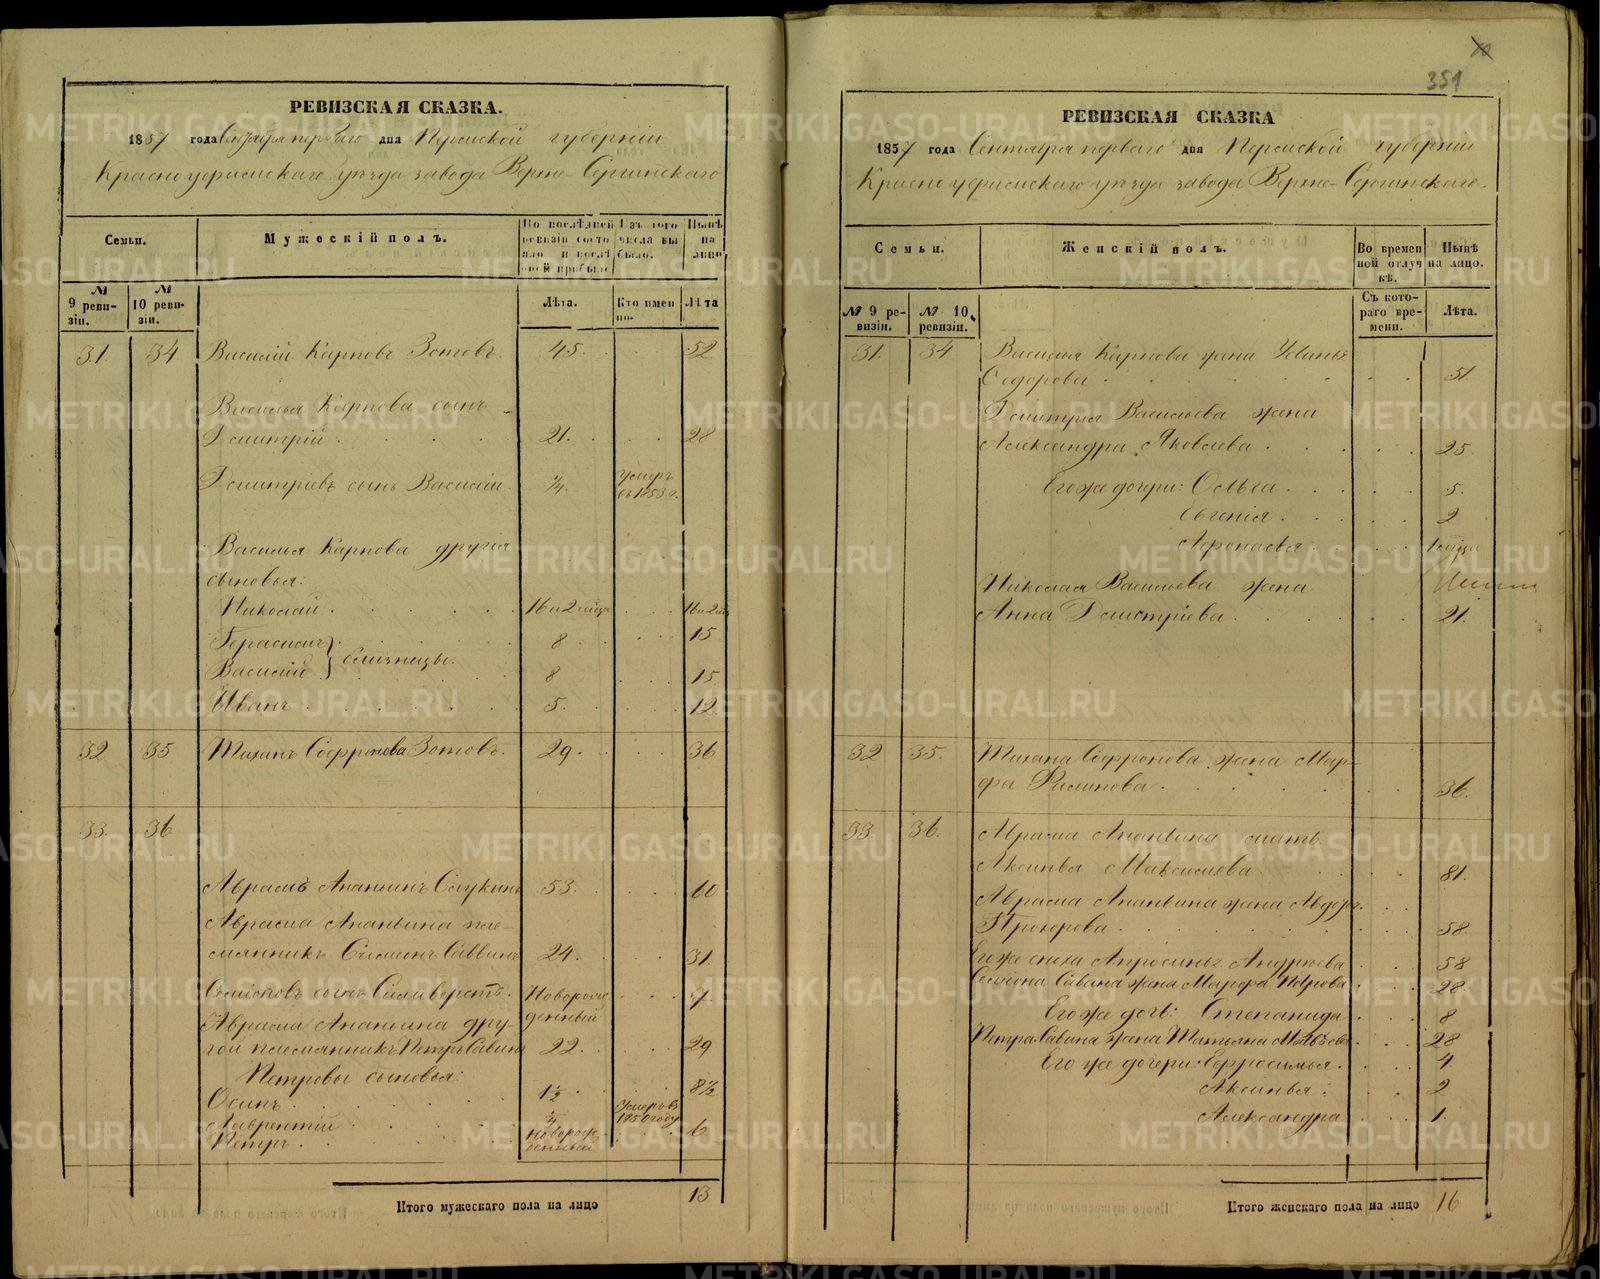 РЕВИЗСКАЯ СКАЗКА.
1857 года Сентября перваго дня Пермской губерніи
Красноуфимскаго уѣзда завода Верхне-Сергинскаго
Семьи.
Мужескій полъ.
По послѣдней ревизіи состояло и послѣ оной прибыло
Изъ того числа выбыло.
Нынѣ на лицо
№ 9 ревизіи.
№ 10 ревизіи.
Лѣта.
Кто именно.
Лѣта
31 34 Василій Карповъ Зотовъ 45. 52
Василья Карпова сынъ
Дмитрій 21. 28
Дмитріевъ сынъ Василій ¼. умеръ въ 1853 г.
Василья Карпова другія
сыновья:
Николай 16 и 2 мѣсца
Герасимъ 8 15
Василій близнецы. 8 15
Иванъ 5. 12
32 35 Тиханъ Софронова Зотовъ. 29. 36
33. 36
Аврамъ Ананьинъ Слукинъ 53. 60
Аврама Ананьина пле-
мянникъ Симеонъ Саввинъ 24. 31.
Семеновъ сынъ Селиверстъ. Новорож
денный 7.
Аврама Ананьина дру-
гой племянникъ Петръ Савинъ 22. 29
Петровы сыновья:
Осипъ 1½. 8½
Лаврентій ¼ Умеръ въ 1850 году
Петръ. Новорож-
денный 6
Итого мужескаго пола на лицо 13
351
РЕВИЗСКАЯ СКАЗКА
1857 года Сентября перваго дня Пермской губерніи
Красноуфимскаго уѣзда завода Верхне-Сергинскаго.
Семьи.
Женскій полъ.
Во времен
ной отлуч
кѣ.
Нынѣ
на лицо.
№ 9 ре-
визіи.
№ 10.
ревизіи.
Съ кото-
раго вре-
мени.
Лѣта.
31. 34 Василья Карпова жена Устинья
Федорова 51
Дмитрія Васильева жена
Александра Яковлева 25
Его же дочери: Ольга 5.
Евгенія 2
Афонасья
Николая Васильева жена
Анна Дмитріева 21.
32 35. Тихана Софронова жена Мар-
фа Филипова 36.
33. 36. Аврама Ананьина мать
Аксинья Максимова 81.
Аврама Ананьина жена Авдотья
Прохорова 58.
Его же сноха Апросинья Андреева 58
Семена Савина жена Марфа Петрова 28
Его же дочь: Степанида 8
Петра Савина жена Татьяна Матвеева 28
Его же дочери: Ефросинья 4
Аксинья: 2
Александра 1.
Итого женскаго пола на лицо 16
METRIKI.GASO-URAL.RU